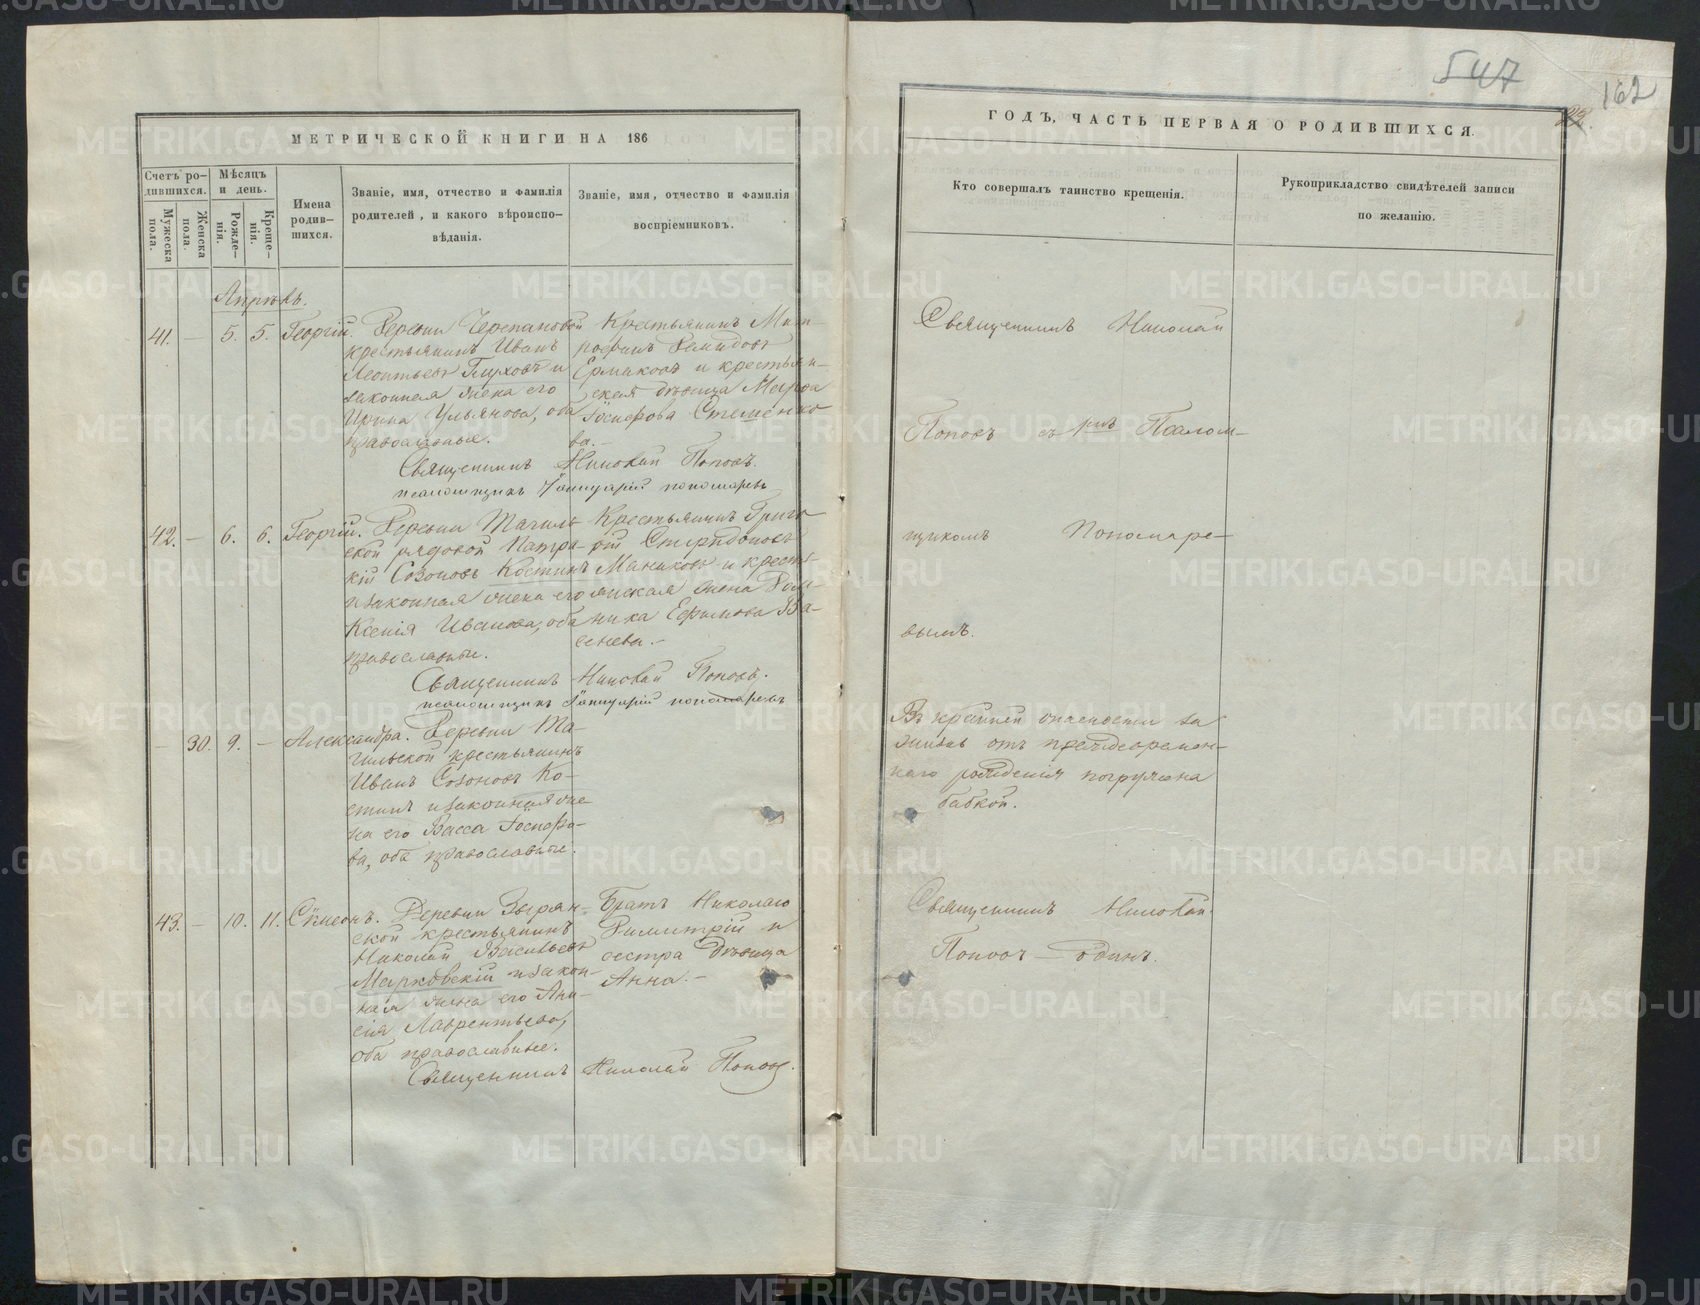 МЕТРИЧЕСКОЙ КНИГИ НА 186
Счетъ ро-
дившихся.
Мѣсяцъ
и день.
Мужеска
пола.
Женска
пола.
Рожде-
нія.
Креще-
нія.
Имена
родив-
шихся.
Званіе, имя, отчество и фамилія
родителей, и какого вѣроиспо-
вѣданія.
Званіе, имя, отчество и фамилія
воспріемниковъ.
Апрѣль.
41. — 5. 5. Георгій.
Деревни Черепановой
крестьянинъ Иванъ
Леонтьевъ Глуховъ и
законная жена его
Ирина Ульянова, оба
православные.
Крестьянинъ Мит-
рофанъ Демидовъ
Ермаковъ и крестьян-
ская дѣвица Марфа
Іосифова Стешенко-
ва.—
Священникъ Николай Поповъ.
псаломщикъ Іаннуарій пономаревъ
42. — 6. 6. Георгій.
Деревни Тагиль-
ской рядовой Патри-
кій Созоновъ Костинъ
и законная жена его
Ксенія Иванова, оба
православные.
Крестьянинъ Григо-
рій Спиридоновъ
Маньковъ и кресть-
янская жена Дом-
ника Ефимова Ва-
сенева.—
Священникъ Николай Поповъ.
псаломщикъ Іаннуарій пономаревъ
— 30. 9. — Александра.
Деревни Та-
гильской крестьянинъ
Иванъ Созоновъ Ко-
стинъ и законная же-
на его Васса Іосифо-
ва, оба православные.
43. — 10. 11. Сѵмеонъ.
Деревни Зырян-
ской крестьянинъ
Николай Васильевъ
Марковскій и закон-
ная жена его Ани-
сія Лаврентьева,
оба православные.
Братъ Николаю
Димитрій и
сестра дѣвица
Анна.—
Священникъ Николай Поповъ.
547
162
ГОДЪ, ЧАСТЬ ПЕРВАЯ О РОДИВШИХСЯ.
Кто совершалъ таинство крещенія.
Рукоприкладство свидѣтелей записи
по желанію.
Священникъ Николай
Поповъ съ Псалом-
щикомъ Пономаре-
вымъ.
Въ крайней опасности за
жизнь отъ преждевремен-
наго рожденія погружена
бабкой.
Священникъ Николай
Поповъ — одинъ.
METRIKI.GASO-URAL.RU